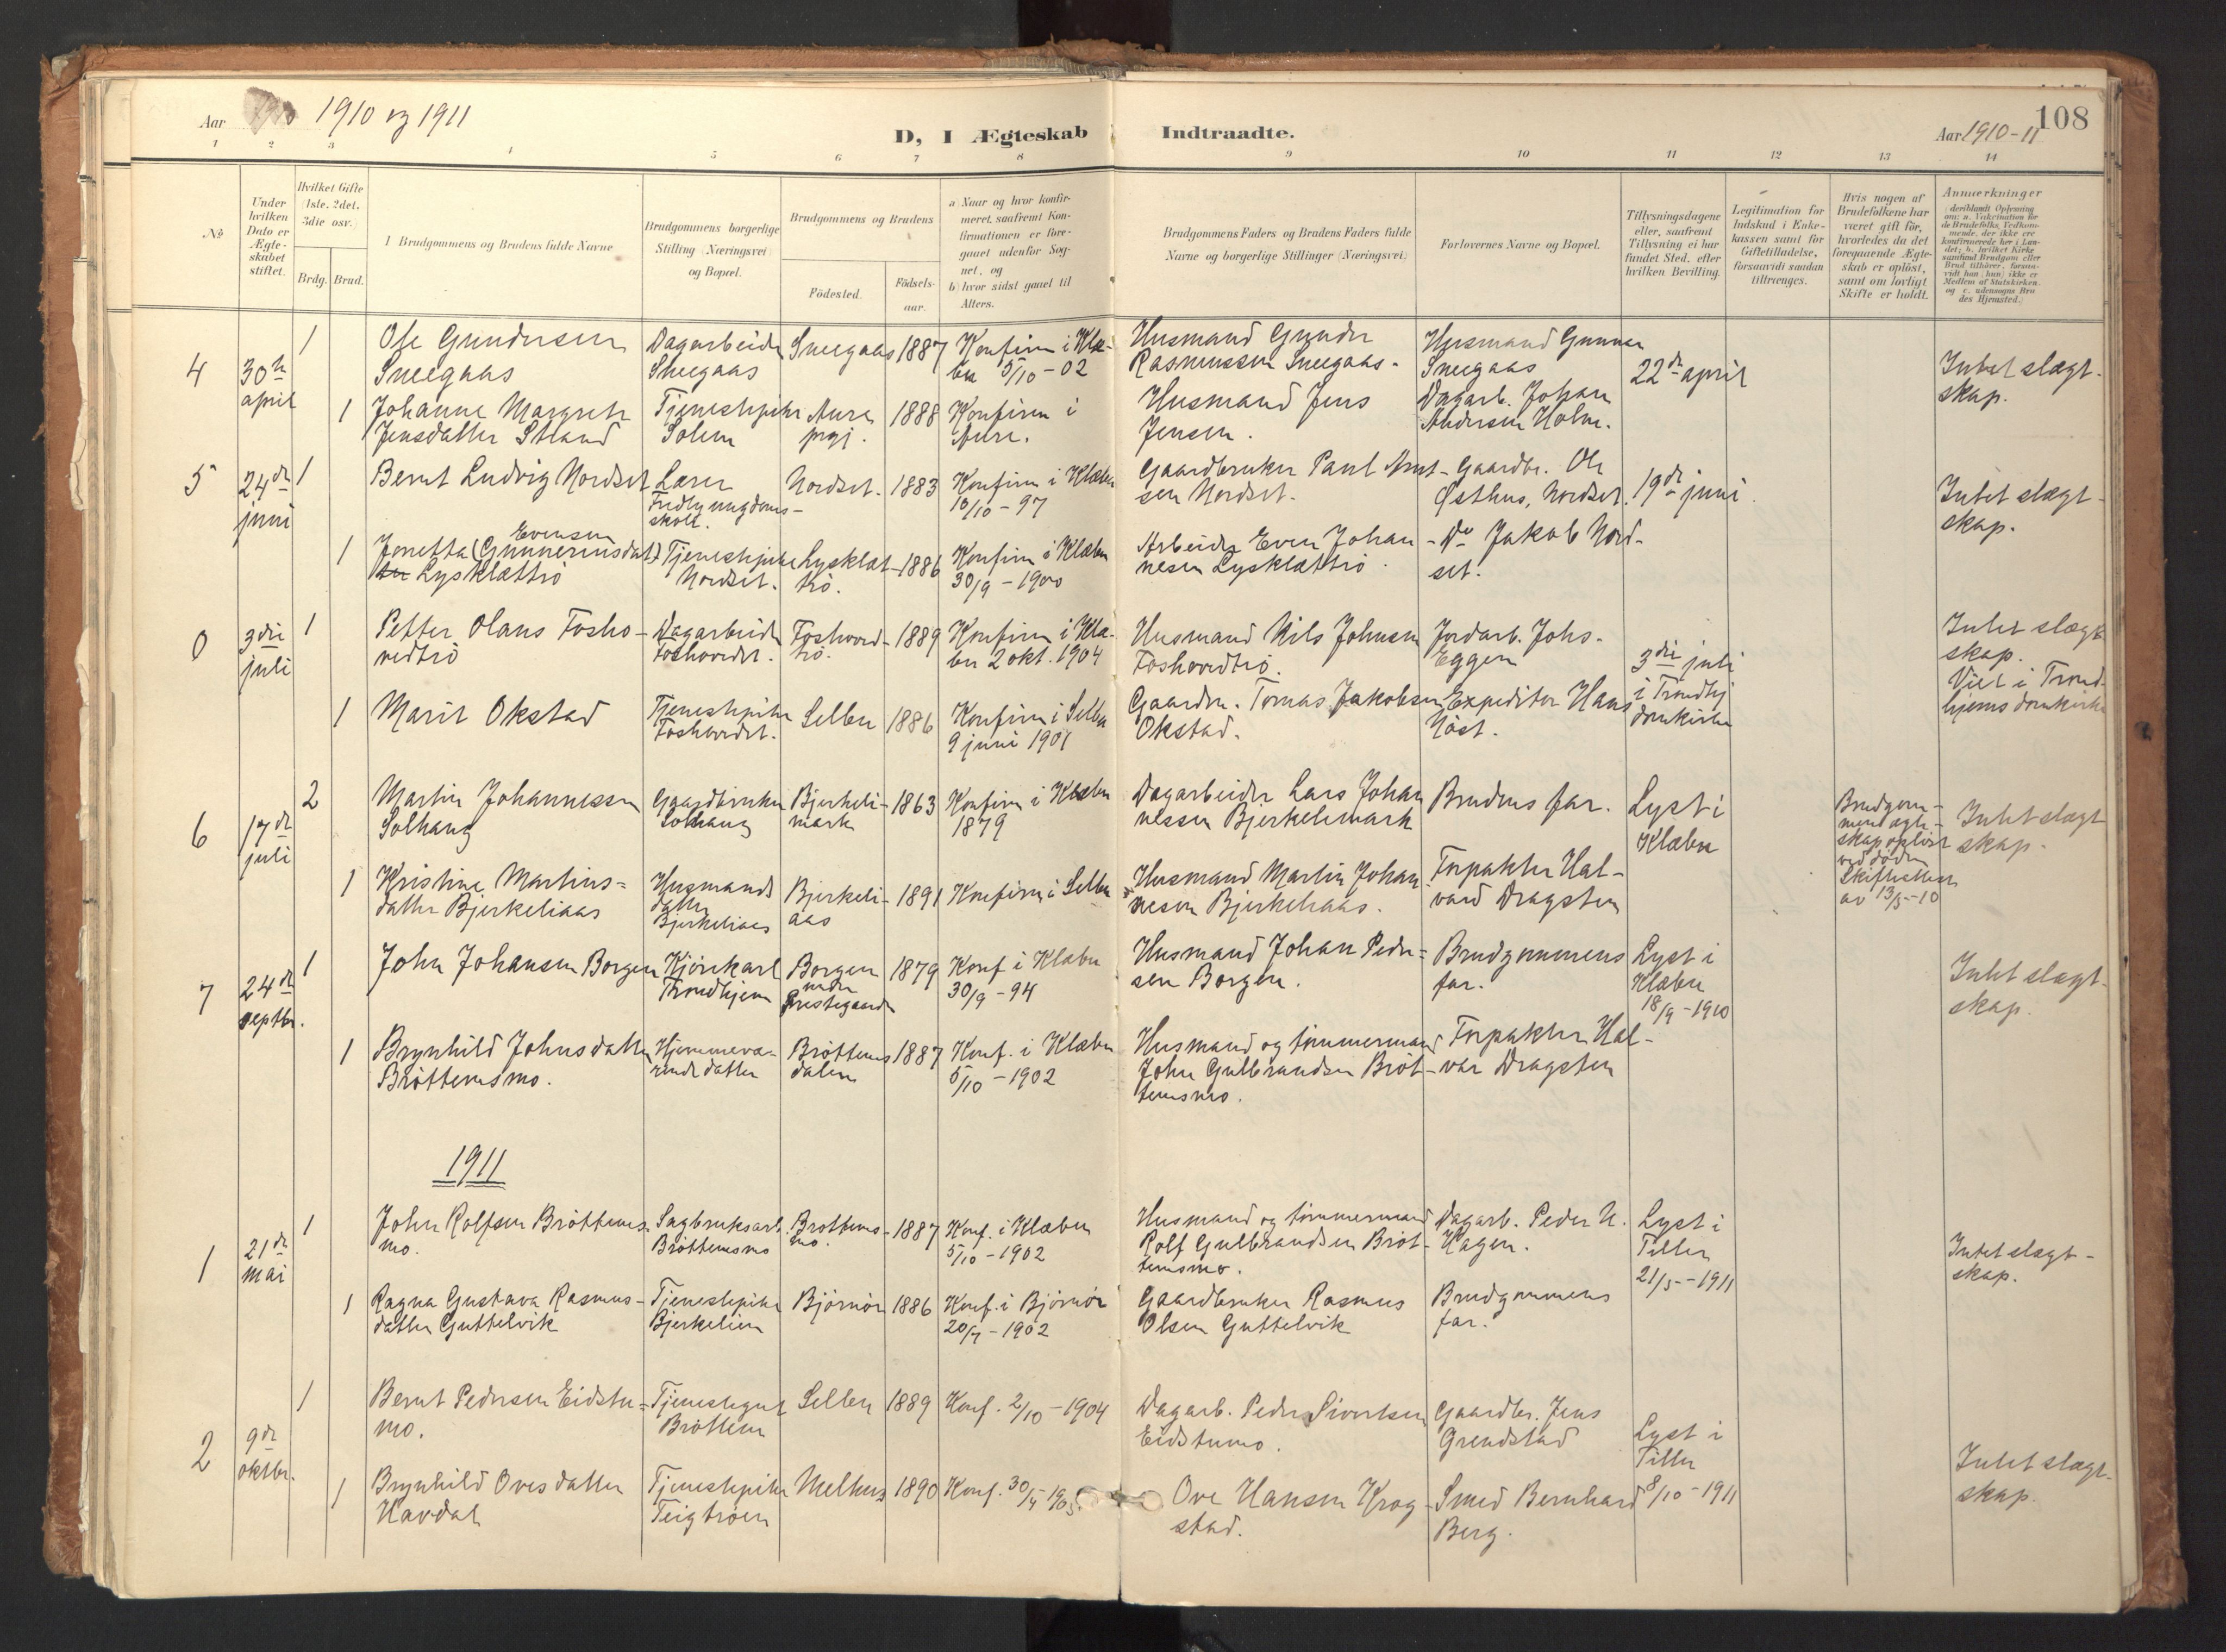 Aar 1910 og 1911
D, I Ægteskab Indtraadte.
Aar 1910-11
108
1 2 3 4 5 6 7 8 9 10 11 12 13 14
No
Under
hvilken
Dato er
Ægte-
skabet
stiftet.
Hvilket Gifte
(1ste, 2det,
3die osv.)
Brdg. Brud.
Brudgommens og Brudens fulde Navne
Brudgommens borgerlige
Stilling (Næringsvei)
og Bopæl.
Brudgommens og Brudens
Födested.
Födsels-
aar.
a) Naar og hvor konfir-
meret, saafremt Kon-
firmationen er fore-
gaaet udenfor Sog-
net, og
b) hvor sidst gaaet til
Alters.
Brudgommens Faders og Brudens Faders fulde
Navne og borgerlige Stillinger (Næringsvei)
Forlovernes Navne og Bopæl.
Tillysningsdagene
eller, saafremt
Tillysning ei har
fundet Sted, efter
hvilken Bevilling.
Legitimation for
Indskud i Enke-
kassen samt for
Giftetilladelse,
forsaavidt saadan
tiltrænges.
Hvis nogen af
Brudefolkene har
været gift før,
hvorledes da det
foregaaende Ægte-
skab er oplöst,
samt om lovligt
Skifte er holdt.
Anmærkninger
(deriblandt Oplysning
om: a. Vakcination for
de Brudefolks Vedkom-
mende, der ikke ere
konfirmerede her i Lan-
det; b. hvilket Kirke-
samfund Brudgom eller
Brud tilhører, forsaa-
vidt han (hun) ikke er
Medlem af Statskirken,
og c. udensogns Bru-
des Hjemsted.)
4
30te
april
1
Ole Gundersen
Sneegaas
Dagarbeider
Sneegaas
Sneegaas
1887
Konfirm i Klæ-
bu 5/10 - 02
Husmand Gunder
Rasmussen Sneegaas.
Husmand Gunnar
Sneegaas
22de april
Intet slægt-
skap.
1
Johanne Margrete
Jensdatter
Tjenestepike
Solem
Aure
prgj.
1888
Konfirm i
Aure.
Husmand Jens
Jensen.
Dagarb. Johan
Andersen Holm.
5
24de
juni
1
Bernt Ludvig Nordset
Lærer
Fredly ungdoms-
skole.
Nordset.
1883
Konfirm i Klæbu
10/10 - 97
Gaardbruker Paul Arnt-
sen Nordset.
Gaardbr. Ole
Østhus, Nordset.
19de juni.
Intet slægt-
skap.
1
Evensen
Jonetta (Gunneriusdat)
Lysklættrö
Tjenestepike
Nordset.
Lysklæt-
trö.
1886
Konfirm i Klæbu
30/9 - 1900
Arbeider Even Johan-
nesen Lysklættrö.
Do Jakob Nord-
set.
0
3die
juli
1
Petter Olaus Fosho-
vedtrö
Dagarbeider
Foshovedet.
Foshoved-
trö.
1889
Konfirm i Klæ-
bu 2 okt. 1904
Husmand Nils Johnsen
Foshovedtrö.
Jordarb. Johs.
Eggen
3die juli
i Trondhj
domkirke
Intet slægt-
skap.
Viet i Trond-
hjems domkirke
1
Marit Okstad
Tjenestepike
Foshovedet.
Selbu
1886
Konfirm i Selbu
9 juni 1901
Gaardm. Tomas Jakobsen
Okstad.
Expeditör Hans
Höst.
6
17de
juli
2
Martin Johannessen
Solhaug
Gaardbruker
Solhaug
Bjerkeli-
mark
1863
Konfirm i Klæbu
1879
Dagarbeider Lars Johan-
nessen Bjerkelimark
Brudens far.
Lyst i
Klæbu
Brudgom-
mens ægte-
skap oplöst
ved döden
Skifteattest
av 13/5-10
Intet slægt
skap.
1
Kristine Martins-
datter Bjerkeliaas
Husmands
datter
Bjerkeliaas
Bjerkeli-
aas
1891
Konfirm i Selbu
Husmand Martin Johan-
nesen Bjerkeliaas.
Forpakter Hal-
vard Dragsten
7
24de
septbr.
1
John Johansen Borgen
Kjörekarl
Trondhjem
Borgen
under
Prestegaarden
1879
Konf i Klæbu
30/9 - 94
Husmand Johan Peder-
sen Borgen.
Brudgommens
far.
Lyst i
Klæbu
18/9 - 1910
Intet slægt-
skap.
1
Brynhild Johnsdatter
Bröttemsmo.
Hjemmevæ-
rende datter
Bröttems
dalen
1887
Konf. i Klæbu
5/10 - 1902
Husmand og tömmermand
John Gulbrandsen Bröt-
temsmo.
Forpakter Hal-
var Dragsten
1911
1
21de
mai
1
John Rolfsen Bröttems-
mo.
Sagbruksarb.
Bröttemsmo
Bröttems-
mo.
1887
Konf. i Klæbu
5/10 - 1902
Husmand og tömmermand
Rolf Gulbrandsen Bröt-
temsmo.
Dagarb. Peder N.
Hagen.
Lyst i
Tiller
21/5 - 1911
Intet slægt-
skap.
1
Ragna Gustava Rasmus-
datter Guttelvik
Tjenestepike
Bjerkelien
Björnör
1886
Konf. i Björnör
20/7 - 1902
Gaardbruker Rasmus
Olsen Guttelvik
Brudgommens
far.
2
9de
oktbr.
1
Bernt Pedersen Eidstu-
mo.
Tjenestegut
Bröttem
Selbu
1889
Konf. 2/10 - 1904
Dagarb. Peder Sivertsen
Eidstumo.
Gaardbr. Jens
Grendstad
Lyst i
Tiller
8/10 - 1911
Intet slægt-
skap.
1
Brynhild Ovesdatter
Havdal
Tjenestepike
Teigtröen
Melhus
1890
Konf. 30/4 1905
Ove Hansen Krog-
stad.
Smed Bernhard
Berg.